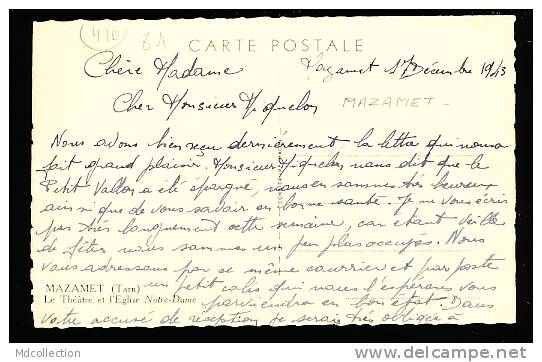 41B
81
CARTE POSTALE
Chère Madame
Mazamet 17 Décembre 1943
Cher Monsieur Miquelon
MAZAMET -
Nous avons bien reçu dernièrement la lettre qui nous a
fait grand plaisir. Monsieur Miquelon nous dit que le
Petit Vallon a été épargné, nous en sommes très heureux
ainsi que de vous savoir en bonne santé. Je ne vous écris
pas très longuement cette semaine, car étant veille
de fêtes nous sommes un peu plus occupés. Nous
vous adressons par ce même courrier et par poste
un petit colis qui nous l'espérons vous
MAZAMET (Tarn)
Le Théâtre et l'Eglise Notre-Dame
parviendra en bon état. Dans
votre accusé de réception je serais très obligée à
Mdcollection
http://www.delcampe.net